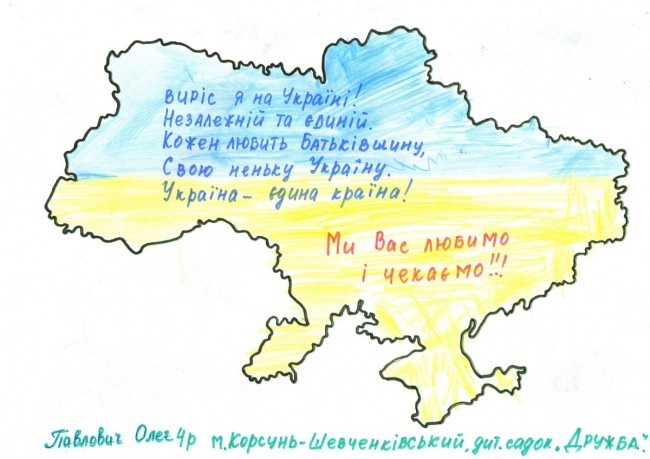 виріс я на Україні!
Незалежній та єдиній.
Кожен любить Батьківщину,
Свою неньку Україну.
Україна – єдина країна!
Ми Вас любимо
і чекаємо!!!
Павлович Олег 4р м.Корсунь-Шевченківський, дит.садок „Дружба".